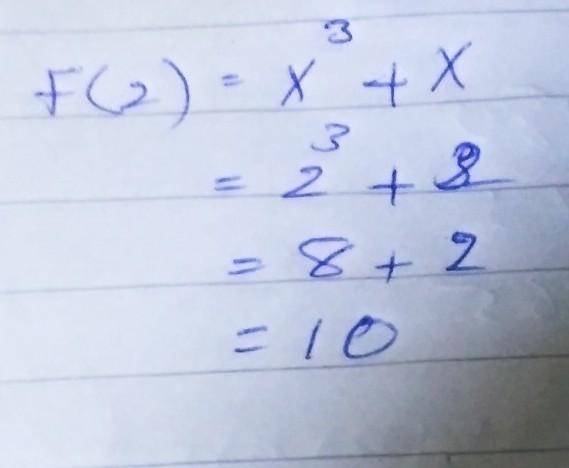 F(2) = x³ + x
= 2³ + 2
= 8 + 2
= 10